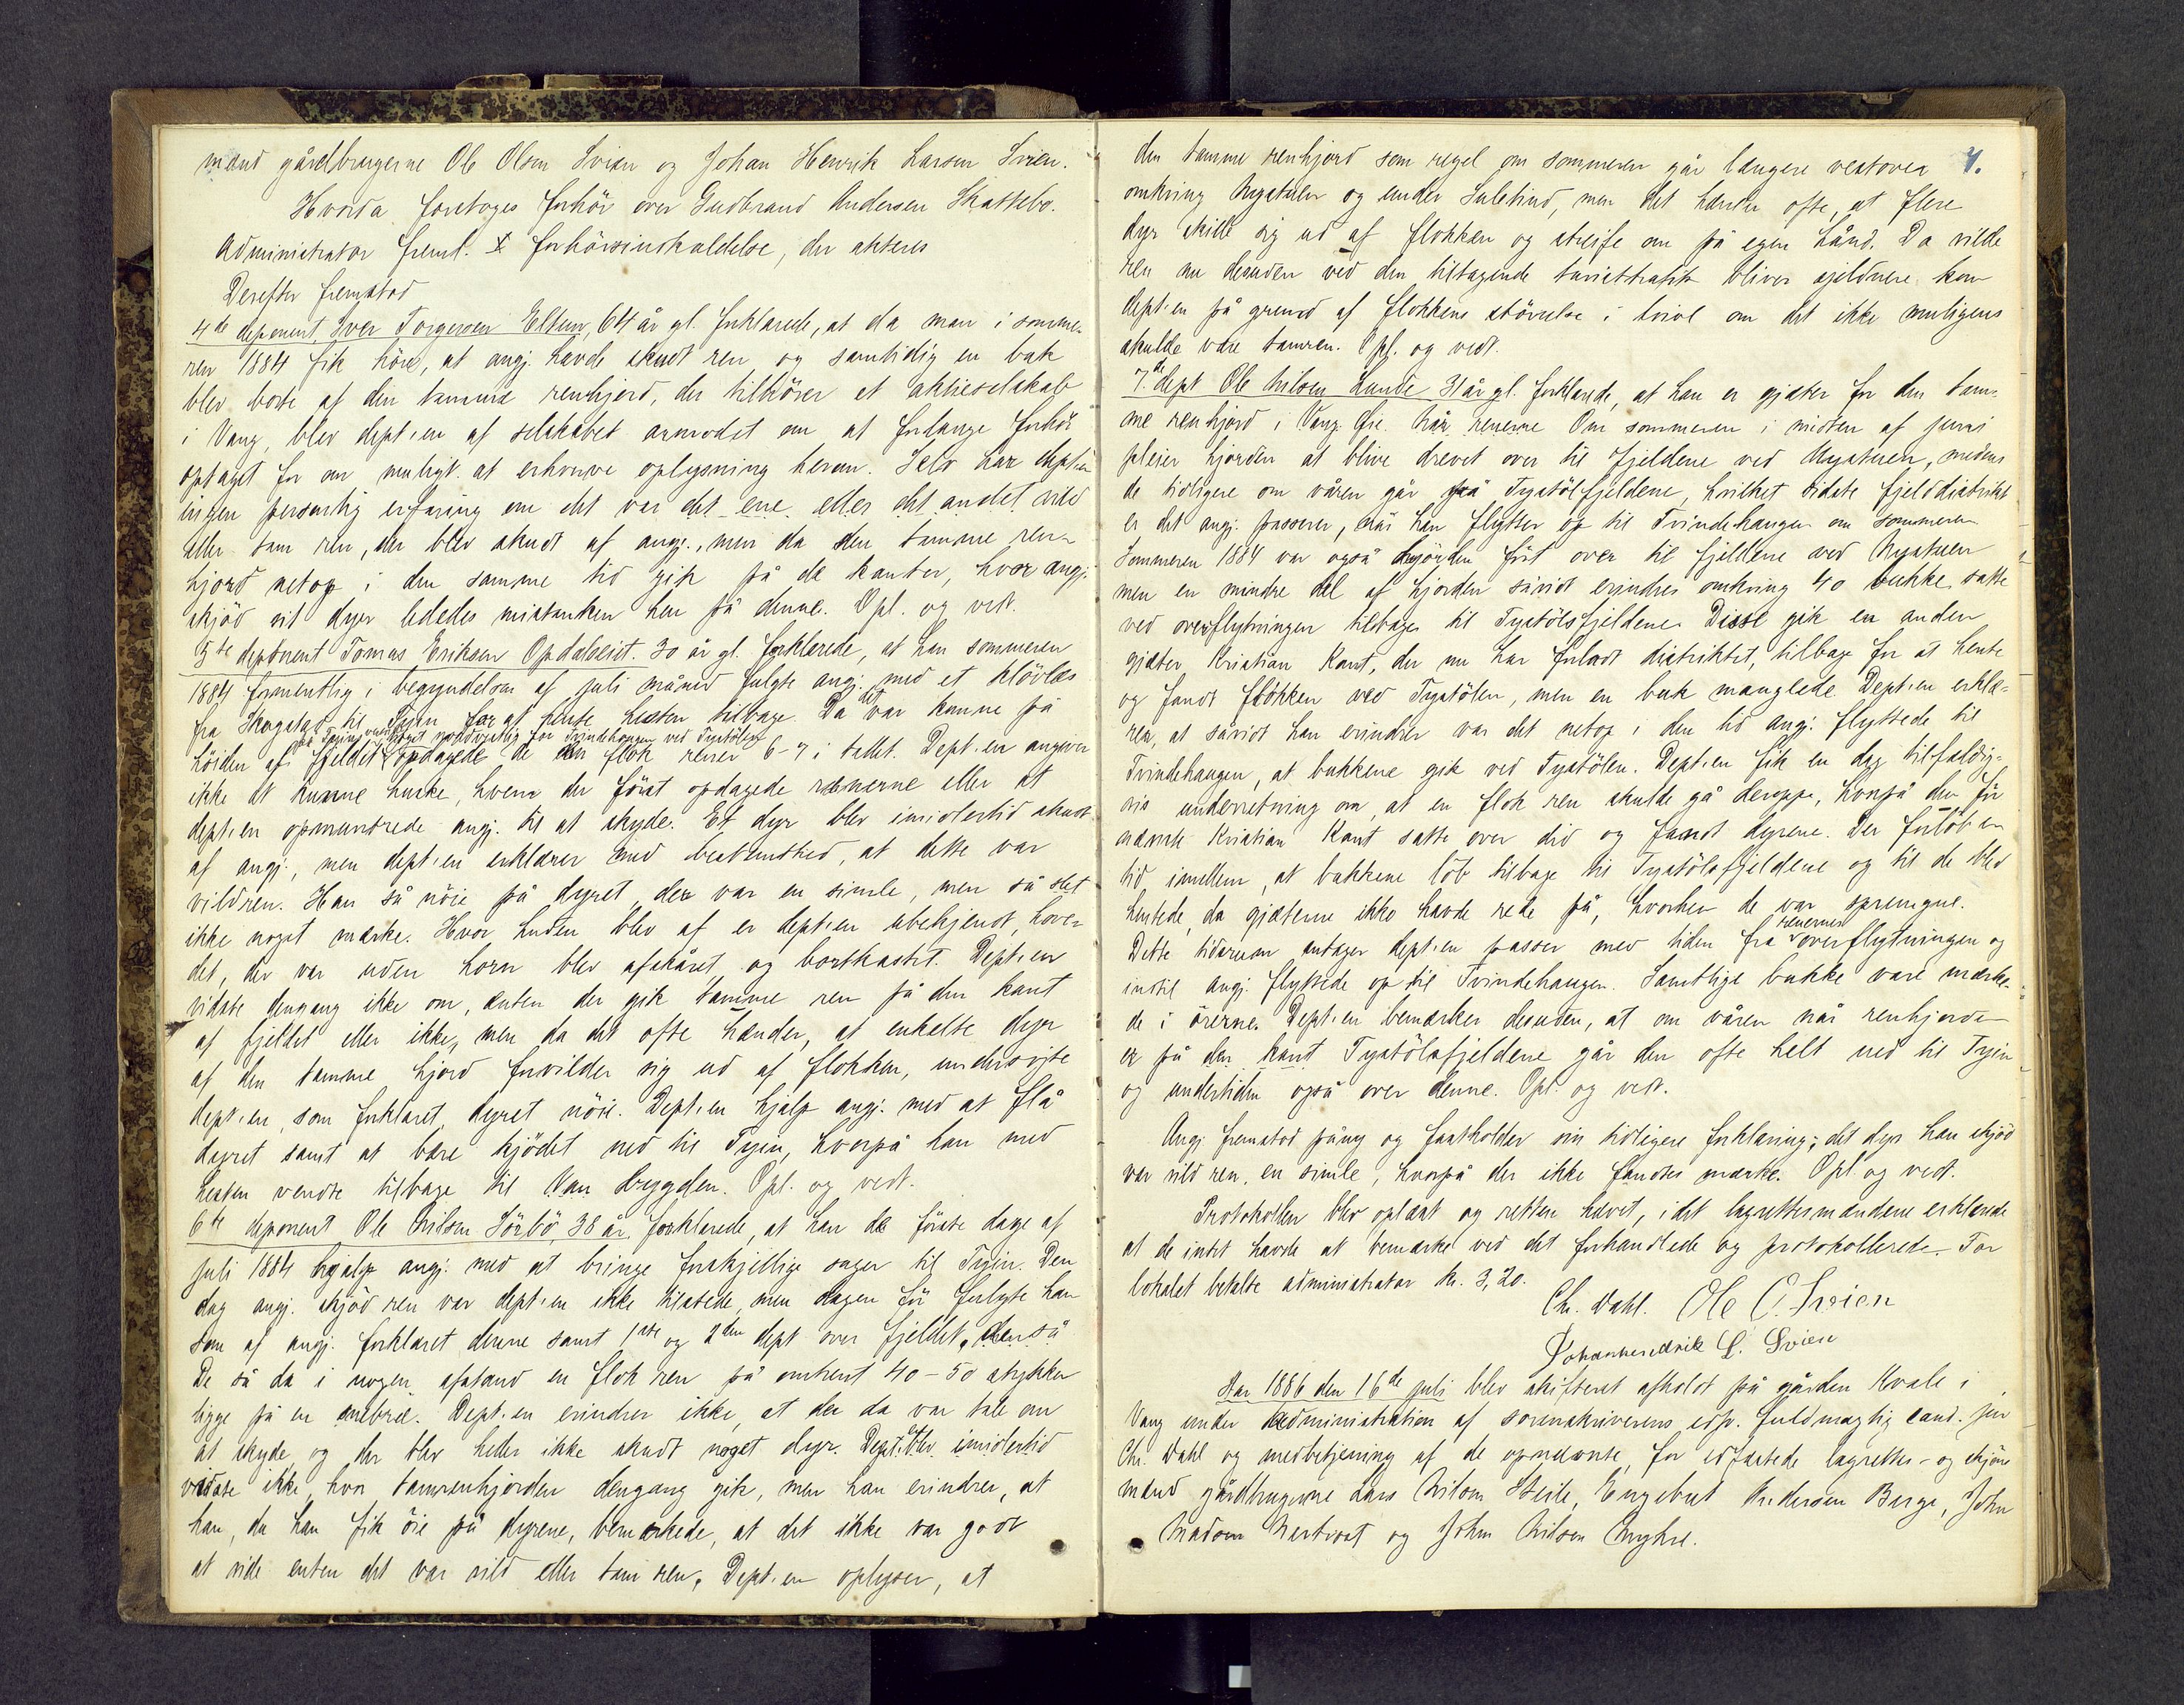 mænd gårdbrugerne Ole Olsen Svien og Johan Henrik Larsen Svien.
Hvorda foretoges forhör over Gudbrand Andersen Skattebo.
Administrator freml. X forhörsindkaldelse, der akteres
Derefter fremstod
4de deponent Iver Torgersen Eltun, 64 år gl. forklarede, at da man i somme-
ren 1884 fik höre, at angj. havde skudt ren og samtidig en buk
blev borte af den tamme renhjord, der tilhörer et aktieselskab
i Vang, blev dept:en af selskabet anmodet om at forlange forhör
optaget for om muligt at erhverve oplysning herom. Selv har dept:en
ingen personlig erfaring om det var det ene eller det andet vild
eller tam ren, der blev skudt af angj., men da den tamme ren-
hjord netop i den samme tid gik på de kanter, hvor angj.
skjöd sit dyr lededes mistanken hen på denne. Opl. og vedt.
5te deponent Tomas Eriksen Opdalseiet 30 år gl. forklarede, at han sommeren
1884 formentlig i begyndelsen af juli måned fulgte angj. med et klövlæs
fra Skogstad til Tyin for at hente hesten tilbage. Da det var komne på
på Tyins noget nordvestlig for Tvindehaugen ved Tystölen
höiden af fjeldet opdagede de en flok rener 6-7 i tallet. Dept:en angiver
ikke at kunne huske, hvem der först opdagede renerne eller at
dept:en opmuntrede angj. til at skyde. Et dyr blev imidlertid skudt
af angj., men dept:en erklærer med bestemthed, at dette var
vildren. Han så nöie på dyret, der var en simle, men så slet
ikke noget mærke. Hvor huden blev af er dept:en ubekjendt, hove-
det, der var uden horn blev afskåret og bortkastet. Dept:en
vidste dengang ikke om, enten der gik tamme ren på den kant
af fjeldet eller ikke, men da det ofte hænder, at enkelte dyr
af den tamme hjord forvilder sig ud af flokken, undersögte
dept:en, som forklaret, dyret nöie. Dept:en hjalp angj. med at flå
dyret samt at bære kjödet ned til Tyin, hvorpå han med
hesten vendte tilbage til Van bygden. Opl. og vedt.
6te deponent Ole Nilsen Sörbö, 38 år, forklarede, at han de förste dage af
juli 1884 hjalp angj. med at bringe forskjellige sager til Tyin. Den
dag angj. skjöd ren var dept:en ikke tilstede, men dagen för fulgte han
som af angj. forklaret denne samt 1ste og 2den dept over fjeldet, den så
De så da i nogen afstand en flok ren på omtrent 40-50 stykker
ligge på en snebræ. Dept:en erindrer ikke, at der da var tale om
at skyde, og der blev heller ikke skudt noget dyr. Dept:en blev imidlertid
vidste ikke, hvor tamrenhjorden dengang gik, men han erindrer, at
han, da han fik öie på dyrene, bemærkede, at det ikke var godt
at vide enten det var vild eller tam ren. Dept:en oplyser, at
4.
den tamme renhjord som regel om sommeren går længere vestover
omkring Nystuen og under Suletind, men det hænder ofte, at flere
dyr skille sig ud af flokken og streife om på egen hånd. Da vilde
ren nu desuden ved den tiltagende turisttrafik bliver sjeldnere kom
dept:en på grund af flokkens störrelse i tvivl om det ikke muligens
skulde være tamren. Opl. og vedt.
7de dept Ole Nilsen Lunde 31 år gl. forklarede, at han er gjæter for den tam-
me renhjord i Vang. Om sommeren i midten af juni
pleier hjorden at blive drevet over til fjeldene ved Nystuen, medens
de tidligere om våren går på Tystölfjeldene, hvilket sidste fjelddistrikt
er det angj. passerer, når han flytter op til Tvindehaugen om sommeren
Sommeren 1884 var også hjorden först over til fjeldene ved Nystuen
men en mindre del af hjorden såvidt erindres omkring 40 bukke satte
ved overflytningen tilbage til Tystölsfjeldene. Disse gik en anden
gjæter Kristian Kant, der nu har forladt distriktet, tilbage for at hente
og fandt flokken ved Tystölen, men en buk manglede. Dept:en erklæ-
rer, at såvidt han erindrer var det netop i den tid angj. flyttede til
Tvindehaugen, at bukkene gik ved Tystölen. Dept:en fik en dag tilfældig-
vis underretning om, at en flok ren skulde gå deroppe, hvorpå den för
nævnte Kristian Kant satte over did og fandt dyrene. Der forlöb en
tid imellem, at bukkene löb tilbage til Tystölsfjeldene og til de blev
hentede, da gjæterne ikke havde rede på, hvorhen de var sprengne.
Dette tidsrum antager dept:en passer med tiden fra renernes overflytningen og
indtil angj. flyttede op til Tvindehaugen. Samtlige bukke vare mærke-
de i örerne. Dept:en bemærker desuden, at om våren når renhjorden
er på den kant Tystölsfjeldene går den ofte helt ned til Tyin
og undertiden også over denne. Opl. og vedt.
Angj. fremstod påny og fastholder sin tidligere forklaring; det dyr han skjöd
var vild ren, en simle, hvorpå der ikke fandtes mærke. Opl. og vedt.
Protokollen blev oplæst og retten hævet, idet lagrettesmændene erklærede
at de intet havde at bemærke ved det forhandlede og protokollerede. For
lokalet betalte administrator kr. 3,20.
Chr. Dahl. Ole O. Svien
Johanhendrik L. Svien
Aar 1886 den 16de juli blev skifteret afholdt på gården Kvale i
Vang under administration af sorenskriverens edsv. fuldmægtig cand. jur
Chr. Dahl og medbetjening af de opnævnte, for edfæstede lagrettes- og skjöns
mænd gårdbrugerne Lars Nilsen Steile, Engebret Andersen Berge, John
Nertrost og John Nilsen Myhre.